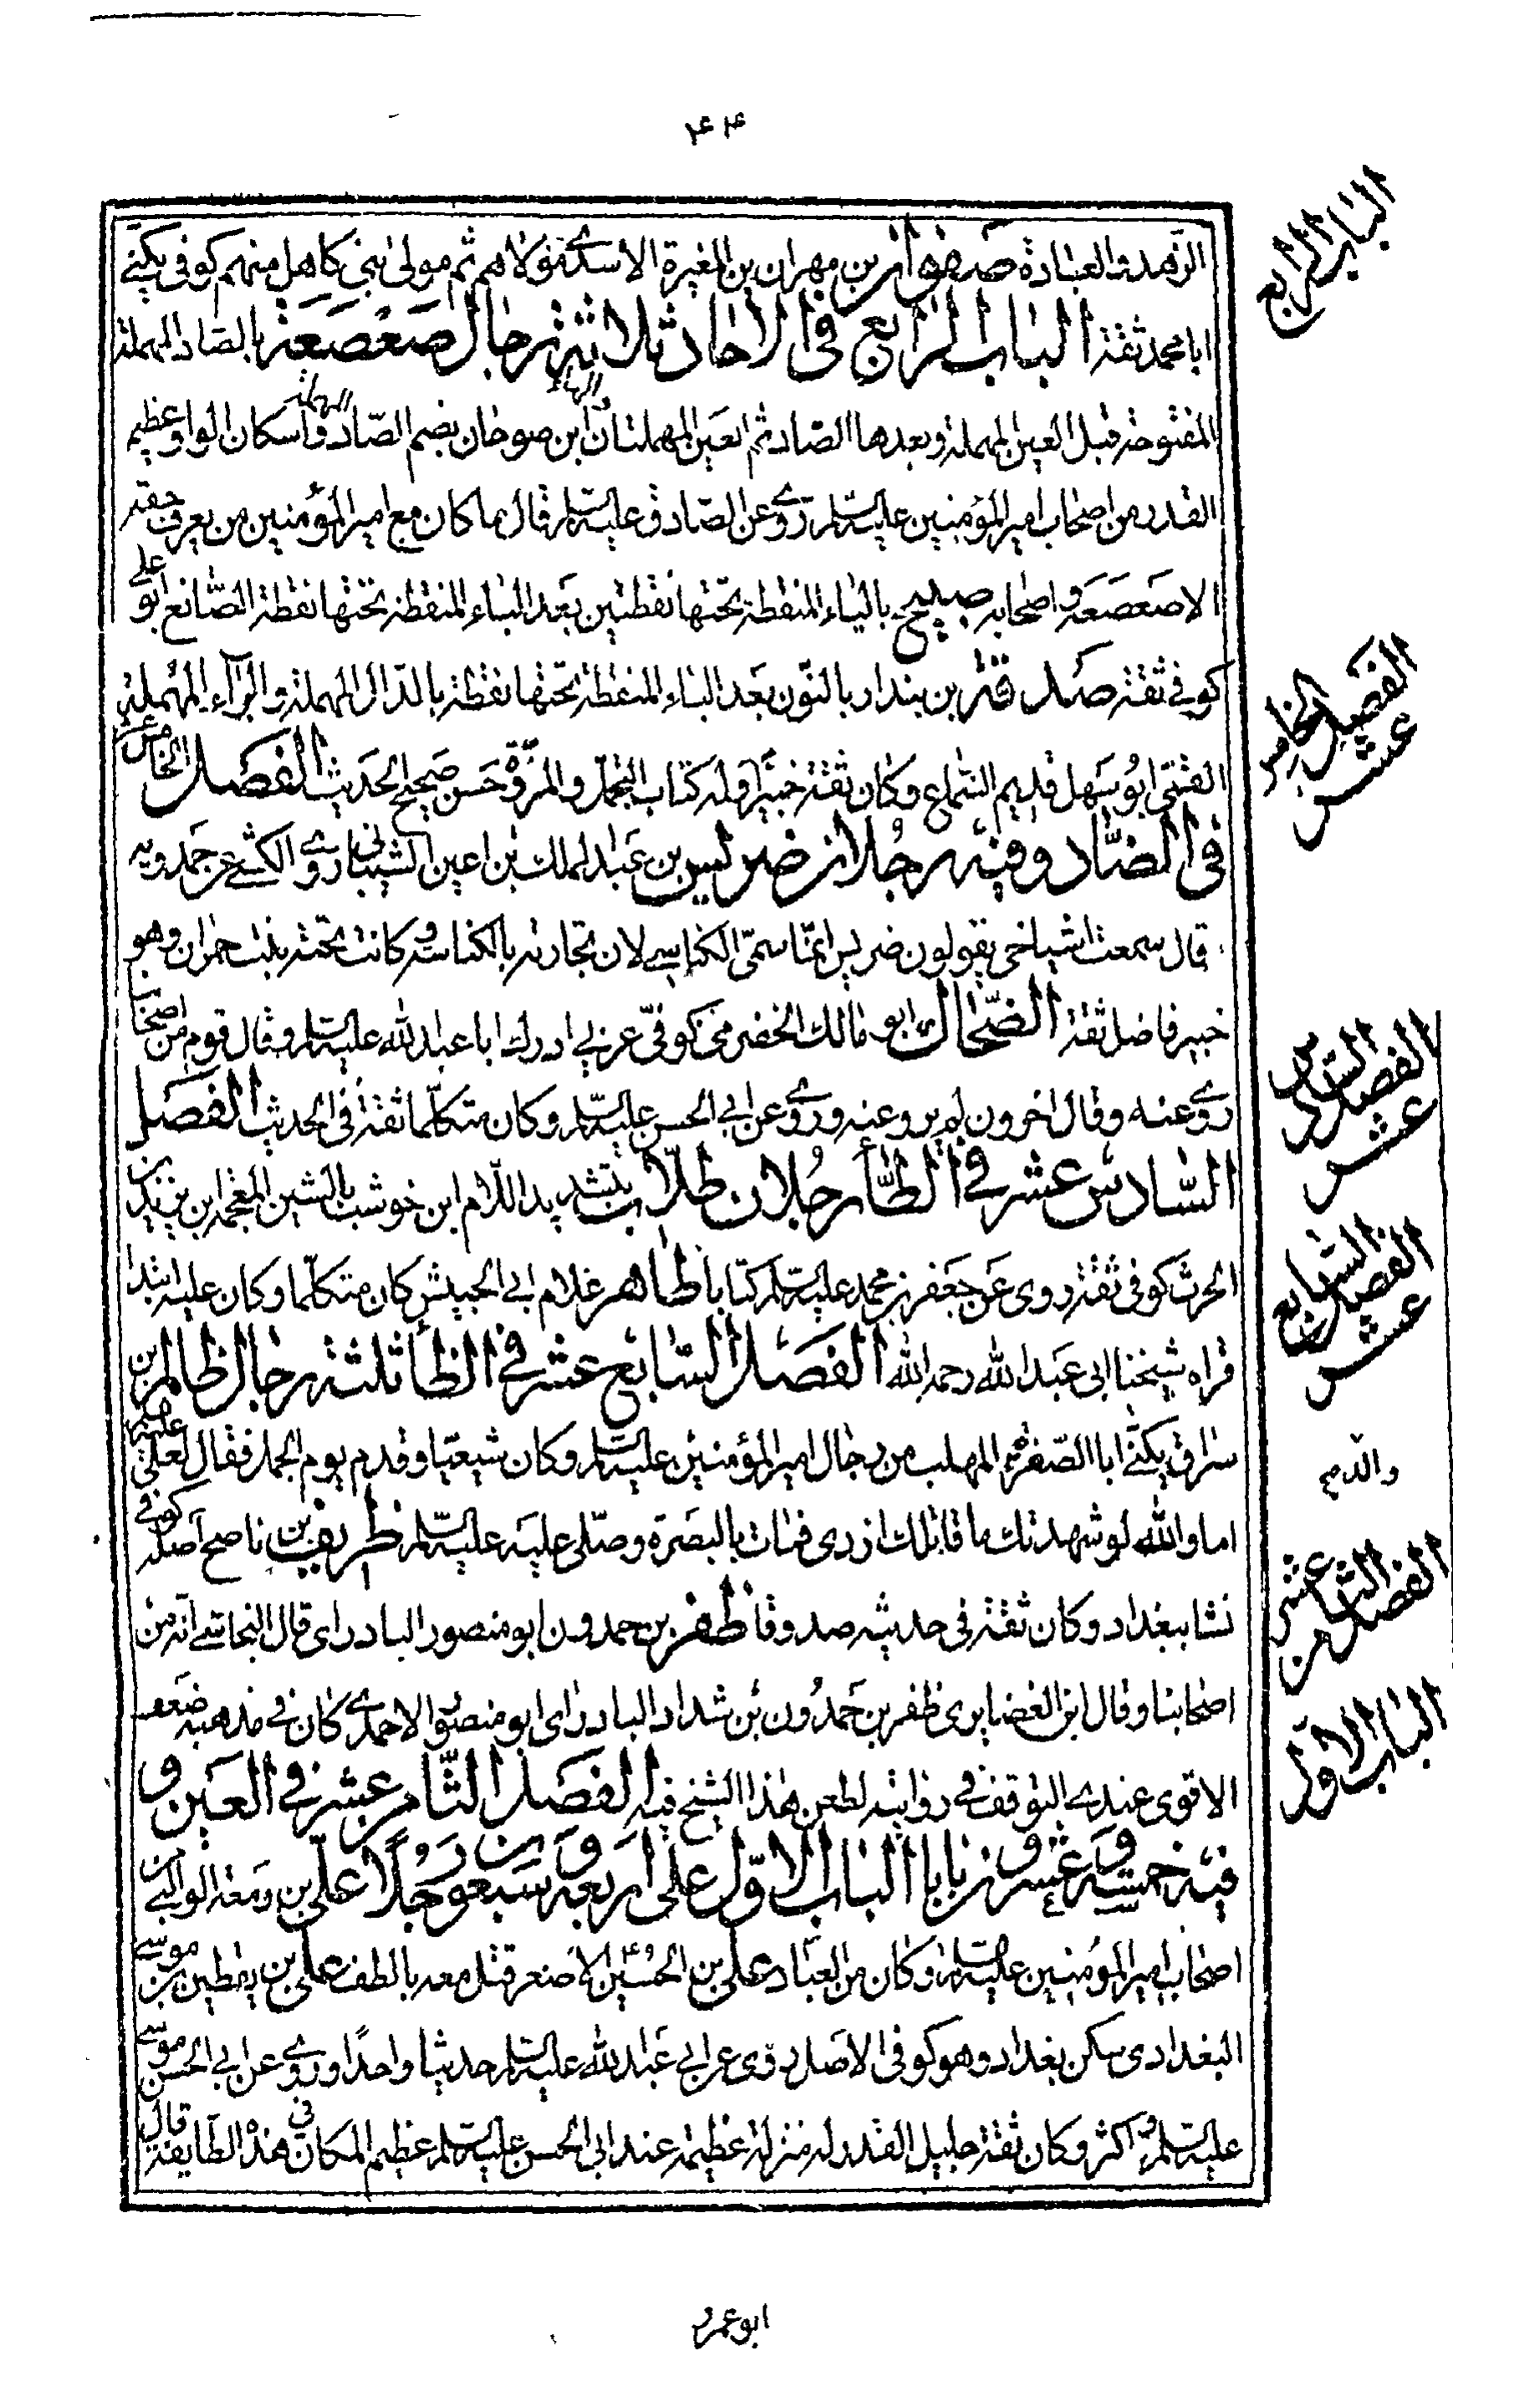 ۴۴
الزهد والعبادة صفوان بن مهران بن المغيرة الاسدى مولاهم ثم مولى بنى كاهل منهم كوفى يكنى
ابا محمد ثقة الباب الرابع فى الاحاد ثلاثة رجال صعصعة بالصاد المهملة
المفتوحة قبل العين المهملة وبعدها الصاد ثم العين المهملتان ابن صوحان بضم الصاد المهملة واسكان الواو والهاء عظيم
القدر من اصحاب امير المؤمنين عليه السلم روى عن الصادق عليه السلم قال ما كان مع امير المؤمنين من يعرف حقه
الا صعصعة واصحابه صبيح بالياء المنقطة تحتها نقطتين بعد الباء المنقطة تحتها نقطة الصائغ ابو على
كوفى ثقة صدقة بن بندار بالنون بعد الباء المنقطة تحتها نقطة بالدال المهملة والراء المهملة
القمى ابو سهل قديم السماع وكان ثقة خيرا وله كتاب التجمل والمروة حسن صحيح الحديث الفصل الخامس عشر
فى الضاد وفيه رجلان ضريس بن عبد الملك بن اعين الشيبانى روى الكشى عن حمدويه
قال سمعت اشياخى يقولون ضريس انما سمى الكناسى لان تجارته بالكناسة وكانت تحته بنت حمران وهو
خير فاضل ثقة الضحاك ابو مالك الحضرمى كوفى عربى ادرك ابا عبد الله عليه السلم وقال قوم من اصحابنا
روى عنه وقال اخرون لم يرو عنه وروى عن ابى الحسن عليه السلم وكان متكلما ثقة فى الحديث الفصل
السادس عشر فى الطاء رجلان طلاب بتشديد اللام ابن حوشب بالشين المعجمة ابن يزيد بن
الحرث كوفى ثقة روى عن جعفر بن محمد عليه السلم كتابا طاهر غلام ابى الحبيش كان متكلما وكان عليه ابتدا
قراه شيخنا ابى عبد الله رحمه الله الفصل السابع عشر فى الظاء ثلثة رجال ظالم بن
سراق يكنى ابا الصفرة المهلب من رجال امير المؤمنين عليه السلم وكان شيعيا وقدم يوم الجمل فقال لعلى عليه السلم
اما والله لو شهدتك ما قاتلك ازدى فمات بالبصرة وصلى عليه عليه السلم ظريف بن ناصح اصله كوفى
نشا ببغداد وكان ثقة فى حديثه صدوقا ظفر بن حمدون ابو منصور البادراى قال النجاشى انه من
اصحابنا وقال ابن الغضايرى ظفر بن حمدون بن شداد البادراى ابو منصور الاحمدى كان فى مذهبه ضعف
الاقوى عندى التوقف فى روايته لطعن هذا الشيخ فيه الفصل الثامن عشر فى العين و
فيه خمسة وعشرون بابا الباب الاول على اربعة وسبعون رجلا على بن ربيعة الوالبى من
اصحاب امير المؤمنين عليه السلم وكان من العباد على بن الحسين الاصغر قتل معه بالطف على بن يقطين بن موسى
البغدادى سكن بغداد وهو كوفى الاصل روى عن ابى عبد الله عليه السلم حديثا واحدا وروى عن ابى الحسن موسى
عليه السلم واكثر وكان ثقة جليل القدر له منزلة عظيمة عند ابى الحسن عليه السلم عظيم المكان فى هذه الطايفة قال
الباب الرابع
الفصل الخامس عشر
الفصل السادس عشر
الفصل السابع عشر
والد
الفصل الثامن عشر
الباب الاول
ابو عمرو